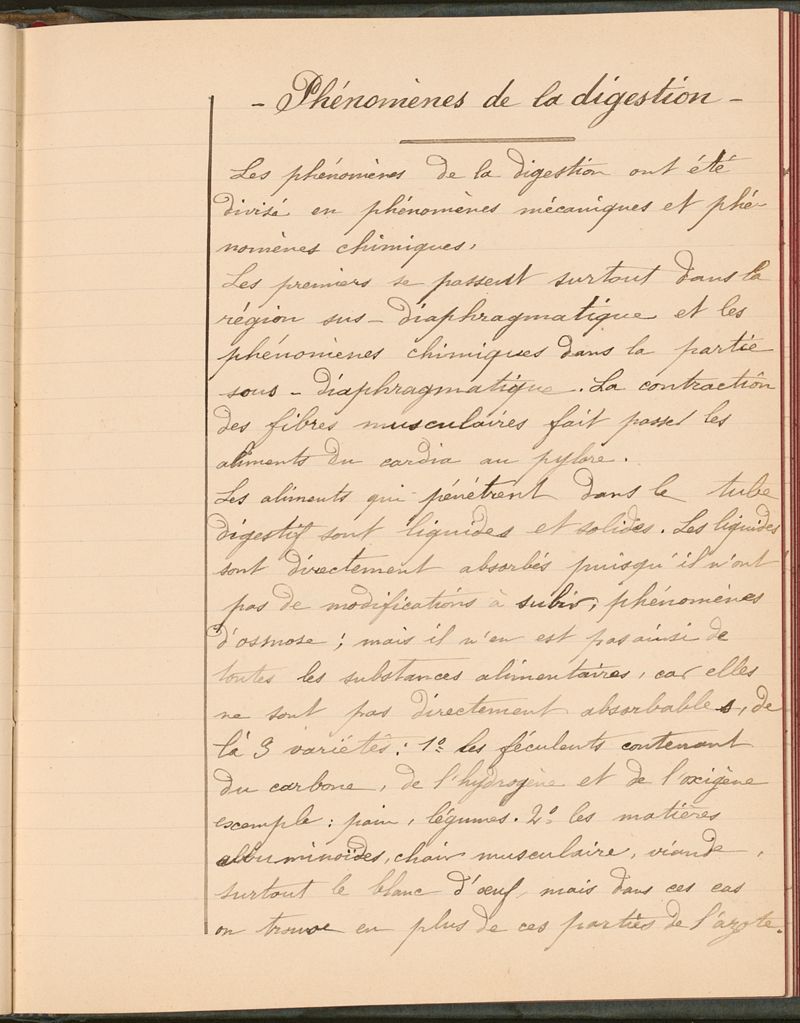 - Phénomènes de la digestion -
Les phénomènes de la digestion ont été
divisé en phénomènes mécaniques et phé-
nomènes chimiques,
Les premiers se passent surtout dans la
région sus-diaphragmatique et les
phénomènes chimiques dans la partie
sous-diaphragmatique. La contraction
des fibres musculaires fait passer les
aliments du cardia au pylore.
Les aliments qui pénètrent dans le tube
digestif sont liquides et solides. Les liquides
sont directement absorbés puisqu'il n'ont
pas de modifications à subir, phénomènes
d'osmose ; mais il n'en est pas ainsi de
toutes les substances alimentaires, car elles
ne sont pas directement absorbables, de
là 3 variétés : 1º les féculents contenant
du carbone, de l'hydrogène et de l'oxigène
exemple : pain, légumes. 2º les matières
albuminoïdes, chair musculaire, viande,
surtout le blanc d'œuf, mais dans ces cas
on trouve en plus de ces parties de l'azote.